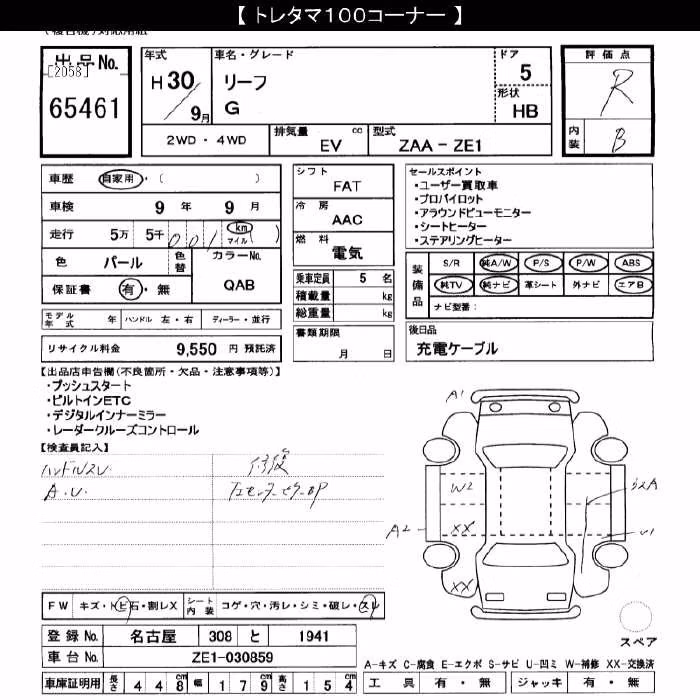 【 トレタマ100コーナー 】
出品No.
[2058]
65461
年式
H30/9月
車名・グレード
リーフ
G
ドア
5
形状
HB
2WD ・ 4WD
排気量 cc
EV
型式
ZAA - ZE1
評価点
R
内装
B
車歴 自家用・( )
車検 9 年 9 月
走行 5万 5千 001 km マイル ( )
色 パール 色替
カラーNo.
QAB
保証書 有・無
モデル年式 年 ハンドル 左・右 ディーラー・並行
リサイクル料金 9,550 円 預託済
シフト
FAT
冷房
AAC
燃料
電気
乗車定員 5 名
積載量 kg
総重量 kg
書類期限
月 日
セールスポイント
・ユーザー買取車
・プロパイロット
・アラウンドビューモニター
・シートヒーター
・ステアリングヒーター
装備品
S/R 純A/W P/S P/W ABS
純TV 純ナビ 革シート 外ナビ エアB
ナビ型番:
後日品
充電ケーブル
【出品店申告欄(不良箇所・欠品・注意事項等)】
・プッシュスタート
・ビルトインETC
・デジタルインナーミラー
・レーダークルーズコントロール
【検査員記入】
ハンドルスレ
A.U.
修復
A1
W2
XX
A2
XX
FW キズ・トビ石・割レX シート内装 コゲ・穴・汚レ・シミ・破レ・スレ
登録No. 名古屋 308 と 1941
車台No. ZE1-030859
車庫証明用 長さ 448cm 幅 179cm 高さ 154cm
スペア
A-キズ C-腐食 E-エクボ S-サビ U-凹ミ W-補修 XX-交換済
工具 有・無 ジャッキ 有・無